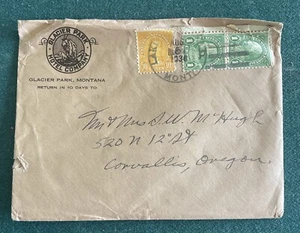 GLACIER PARK
HOTEL COMPANY
GLACIER PARK, MONTANA
RETURN IN 10 DAYS TO
MONT
Mr & Mrs D.W. McHugh
520 N 12th St
Corvallis, Oregon.